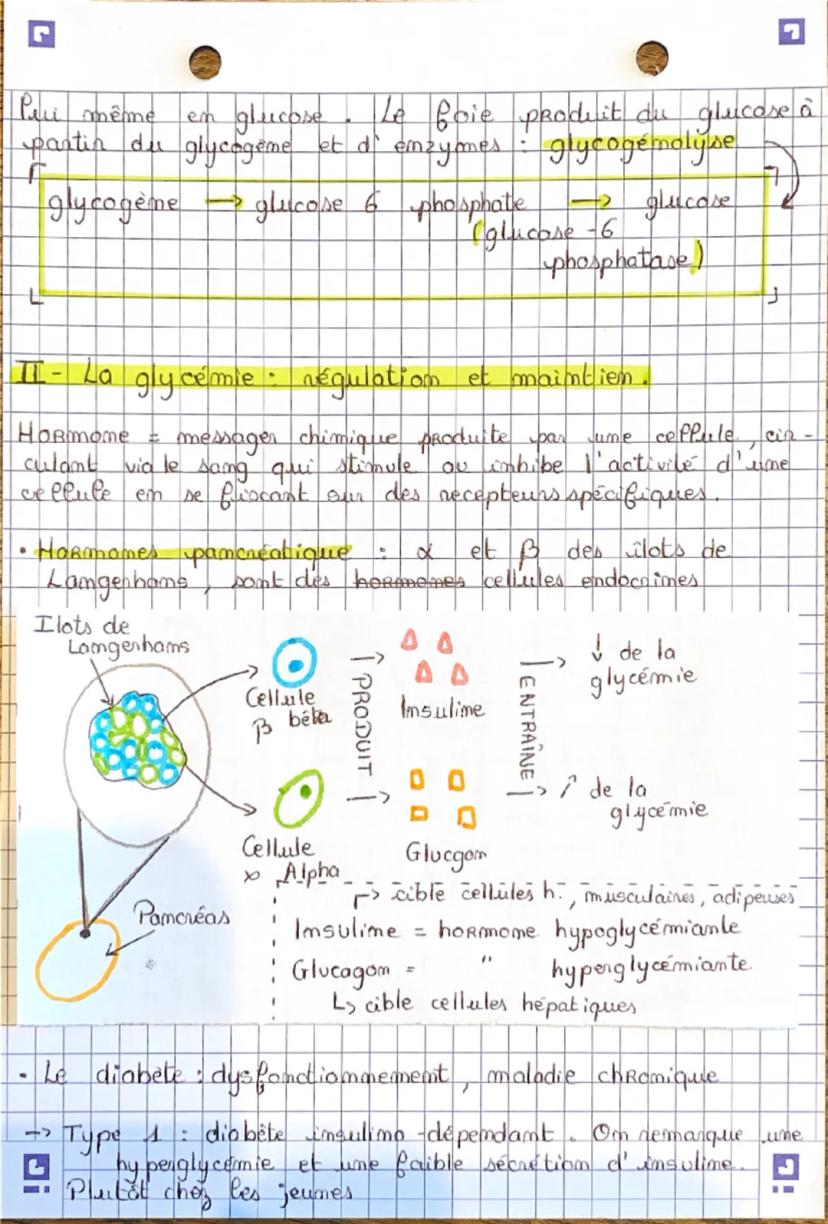 lui même en glucose. Le foie produit du glucose à
partir du glycogène et d'enzymes : glycogénolyse
glycogène → glucose 6 phosphate → glucose
(glucose -6
phosphatase)
II - La glycémie : régulation et maintien.
Hormone = messager chimique produite par une cellule, cir-
culant via le sang qui stimule ou inhibe l'activité d'une
cellule en se fixant sur des recepteurs spécifiques.
• Hormones pancréatique : α et β des îlots de
Langenhans, sont des hormones cellules endocrines
Ilots de
Langenhans
Cellule
β béta
PRODUIT
Insuline
ENTRAÎNE
→ ↓ de la
glycémie
Cellule
α Alpha
→
Glucgon
→ ↑ de la
glycémie
Pancréas
↱ cible cellules h., musculaires, adipeuses
Insuline = hormone hypoglycémiante
Glucagon = " hyperglycémiante
↳ cible cellules hépatiques
• Le diabète : dysfonctionnement, maladie chronique
→ Type 1 : diabète insulino-dépendant. On remarque une
hyperglycémie et une faible sécrétion d'insuline.
Plutôt chez les jeunes